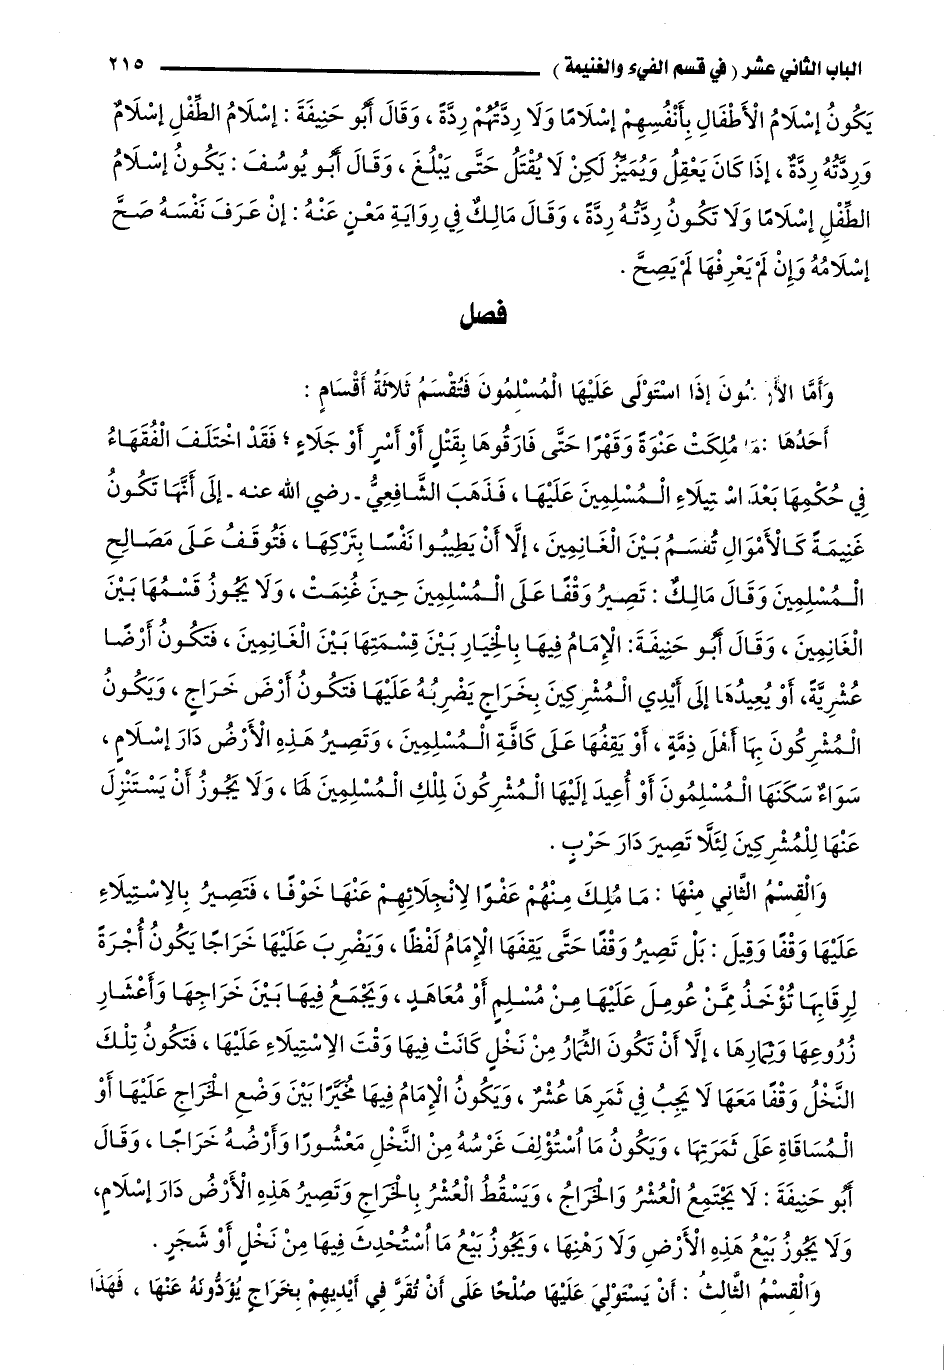 الباب الثاني عشر ( في قسم الفيء والغنيمة ) ٢١٥
يَكُونُ إِسْلَامُ الْأَطْفَالِ بِأَنْفُسِهِمْ إِسْلَامًا وَلَا رِدَّتُهُمْ رِدَّةً ، وَقَالَ أَبُو حَنِيفَةَ : إِسْلَامُ الطِّفْلِ إِسْلَامٌ
وَرِدَّتُهُ رِدَّةٌ ، إِذَا كَانَ يَعْقِلُ وَيُمَيِّزُ لَكِنْ لَا يُقْتَلُ حَتَّى يَبْلُغَ ، وَقَالَ أَبُو يُوسُفَ : يَكُونُ إِسْلَامُ
الطِّفْلِ إِسْلَامًا وَلَا تَكُونُ رِدَّتُهُ رِدَّةً ، وَقَالَ مَالِكٌ فِي رِوَايَةِ مَعْنٍ عَنْهُ : إِنْ عَرَفَ نَفْسَهُ صَحَّ
إِسْلَامُهُ وَإِنْ لَمْ يَعْرِفْهَا لَمْ يَصِحَّ .
فصل
وَأَمَّا الْأَرَضُونَ إِذَا اسْتَوْلَى عَلَيْهَا الْمُسْلِمُونَ فَتُقْسَمُ ثَلَاثَةُ أَقْسَامٍ :
أَحَدُهَا : مَا مُلِكَتْ عَنْوَةً وَقَهْرًا حَتَّى فَارَقُوهَا بِقَتْلٍ أَوْ أَسْرٍ أَوْ جَلَاءٍ ؛ فَقَدْ اخْتَلَفَ الْفُقَهَاءُ
فِي حُكْمِهَا بَعْدَ اسْتِيلَاءِ الْمُسْلِمِينَ عَلَيْهَا ، فَذَهَبَ الشَّافِعِيُّ - رضي الله عنه - إِلَى أَنَّهَا تَكُونُ
غَنِيمَةً كَالْأَمْوَالِ تُقْسَمُ بَيْنَ الْغَانِمِينَ ، إِلَّا أَنْ يَطِيبُوا نَفْسًا بِتَرْكِهَا ، فَتُوقَفُ عَلَى مَصَالِحِ
الْمُسْلِمِينَ وَقَالَ مَالِكٌ : تَصِيرُ وَقْفًا عَلَى الْمُسْلِمِينَ حِينَ غُنِمَتْ ، وَلَا يَجُوزُ قَسْمُهَا بَيْنَ
الْغَانِمِينَ ، وَقَالَ أَبُو حَنِيفَةَ : الْإِمَامُ فِيهَا بِالْخِيَارِ بَيْنَ قِسْمَتِهَا بَيْنَ الْغَانِمِينَ ، فَتَكُونُ أَرْضًا
عُشْرِيَّةً، أَوْ يُعِيدُهَا إِلَى أَيْدِي الْمُشْرِكِينَ بِخَرَاجٍ يَضْرِبُهُ عَلَيْهَا فَتَكُونُ أَرْضَ خَرَاجٍ ، وَيَكُونُ
الْمُشْرِكُونَ بِهَا أَهْلَ ذِمَّةٍ ، أَوْ يَقِفُهَا عَلَى كَافَّةِ الْمُسْلِمِينَ ، وَتَصِيرُ هَذِهِ الْأَرْضُ دَارَ إِسْلَامٍ ،
سَوَاءٌ سَكَنَهَا الْمُسْلِمُونَ أَوْ أُعِيدَ إِلَيْهَا الْمُشْرِكُونَ لِمِلْكِ الْمُسْلِمِينَ لَهَا ، وَلَا يَجُوزُ أَنْ يَسْتَنْزِلَ
عَنْهَا لِلْمُشْرِكِينَ لِئَلَّا تَصِيرَ دَارَ حَرْبٍ .
وَالْقِسْمُ الثَّانِي مِنْهَا : مَا مُلِكَ مِنْهُمْ عَفْوًا لِانْجِلَائِهِمْ عَنْهَا خَوْفًا ، فَتَصِيرُ بِالِاسْتِيلَاءِ
عَلَيْهَا وَقْفًا وَقِيلَ : بَلْ تَصِيرُ وَقْفًا حَتَّى يَقِفَهَا الْإِمَامُ لَفْظًا ، وَيَضْرِبَ عَلَيْهَا خَرَاجًا يَكُونُ أُجْرَةً
لِرِقَابِهَا تُؤْخَذُ مِمَّنْ عُومِلَ عَلَيْهَا مِنْ مُسْلِمٍ أَوْ مُعَاهَدٍ ، وَيَجْمَعُ فِيهَا بَيْنَ خَرَاجِهَا وَأَعْشَارِ
زُرُوعِهَا وَثِمَارِهَا ، إِلَّا أَنْ تَكُونَ الثِّمَارُ مِنْ نَخْلٍ كَانَتْ فِيهَا وَقْتَ الِاسْتِيلَاءِ عَلَيْهَا ، فَتَكُونُ تِلْكَ
النَّخْلُ وَقْفًا مَعَهَا لَا يَجِبُ فِي ثَمَرِهَا عُشْرٌ ، وَيَكُونُ الْإِمَامُ فِيهَا مُخَيَّرًا بَيْنَ وَضْعِ الْخَرَاجِ عَلَيْهَا أَوْ
الْمُسَاقَاةِ عَلَى ثَمَرَتِهَا ، وَيَكُونُ مَا اُسْتُؤْلِفَ غَرْسُهُ مِنْ النَّخْلِ مَعْشُورًا وَأَرْضُهُ خَرَاجًا ، وَقَالَ
أَبُو حَنِيفَةَ : لَا يَجْتَمِعُ الْعُشْرُ وَالْخَرَاجُ ، وَيَسْقُطُ الْعُشْرُ بِالْخَرَاجِ وَتَصِيرُ هَذِهِ الْأَرْضُ دَارَ إِسْلَامٍ،
وَلَا يَجُوزُ بَيْعُ هَذِهِ الْأَرْضِ وَلَا رَهْنِهَا ، وَيَجُوزُ بَيْعُ مَا اُسْتُحْدِثَ فِيهَا مِنْ نَخْلٍ أَوْ شَجَرٍ .
وَالْقِسْمُ الثَّالِثُ : أَنْ يَسْتَوْلِيَ عَلَيْهَا صُلْحًا عَلَى أَنْ تُقَرَّ فِي أَيْدِيهِمْ بِخَرَاجٍ يُؤَدُّونَهُ عَنْهَا ، فَهَذَا